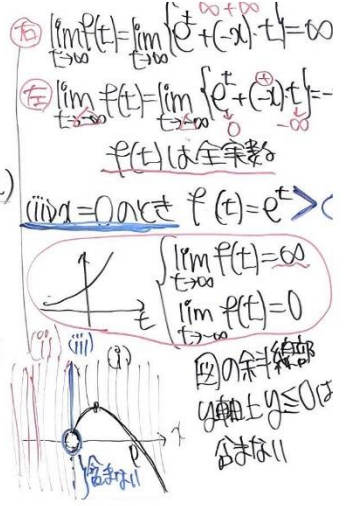 ∞+∞
右 lim_{t→∞} f(t)=lim_{t→∞}{e^t+(-x)·t}=∞
左 lim_{t→-∞} f(t)=lim_{t→-∞}{e^t+(-x)t}=-
⊕
0 -∞
f(t)は全実数
(iii)x=0のとき f(t)=e^t>
lim_{t→∞} f(t)=∞
t
lim_{t→-∞} f(t)=0
(ii) (iii) (i)
図の斜線部
x
y軸上y≦0は
含まない
含まない